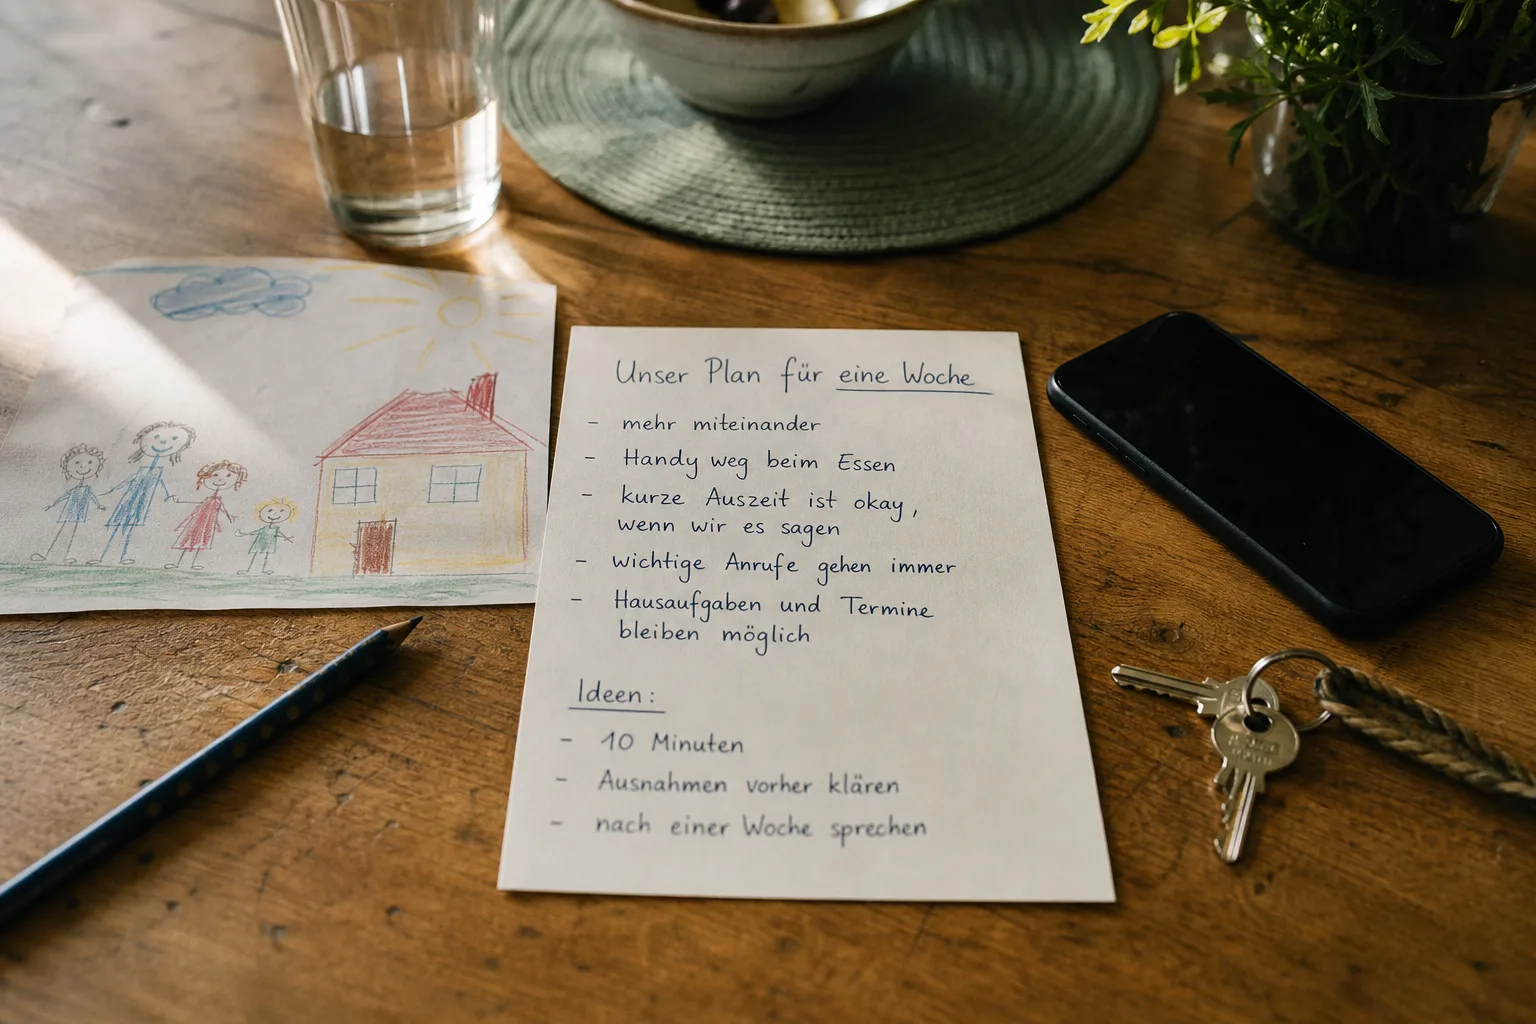 Unser Plan für eine Woche
- mehr miteinander
- Handy weg beim Essen
- kurze Auszeit ist okay,
wenn wir es sagen
- wichtige Anrufe gehen immer
- Hausaufgaben und Termine
bleiben möglich
Ideen:
- 10 Minuten
- Ausnahmen vorher klären
- nach einer Woche sprechen